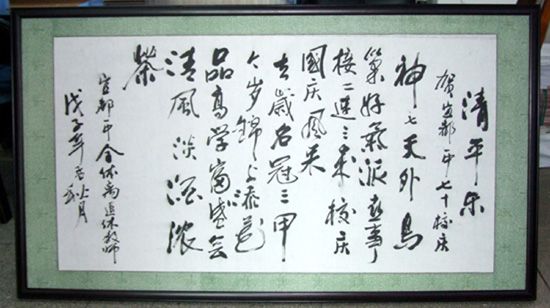 清平乐
贺宜都一中七十校庆
神七天外鸟
巢好气派喜事
接二连三来校庆
国庆风采
去岁名冠三甲
今岁锦上添花
品高学富盛会
清风淡酒浓
茶
宜都一中全体离退休教师
戊子年月